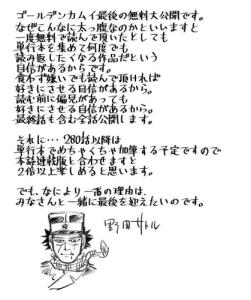 ゴールデンカムイ最後の無料大公開です。
なぜこんなに太っ腹なのかといいますと
一度無料で読んで頂いたとしても
単行本を集めて何度でも
読み返したくなる作品だという
自信があるからです。
食わず嫌いでも読んで頂ければ
好きにさせる自信があるから。
読む前に偏見があっても
好きにさせる自信があるから。
最終話も含む全話公開します。
それに…280話以降は
単行本でめちゃくちゃ加筆する予定ですので
本誌連載版と合わせますと
2倍以上楽しめると思います。
でも、なにより一番の理由は
みなさんと一緒に最後を迎えたいのです。
野田サトル